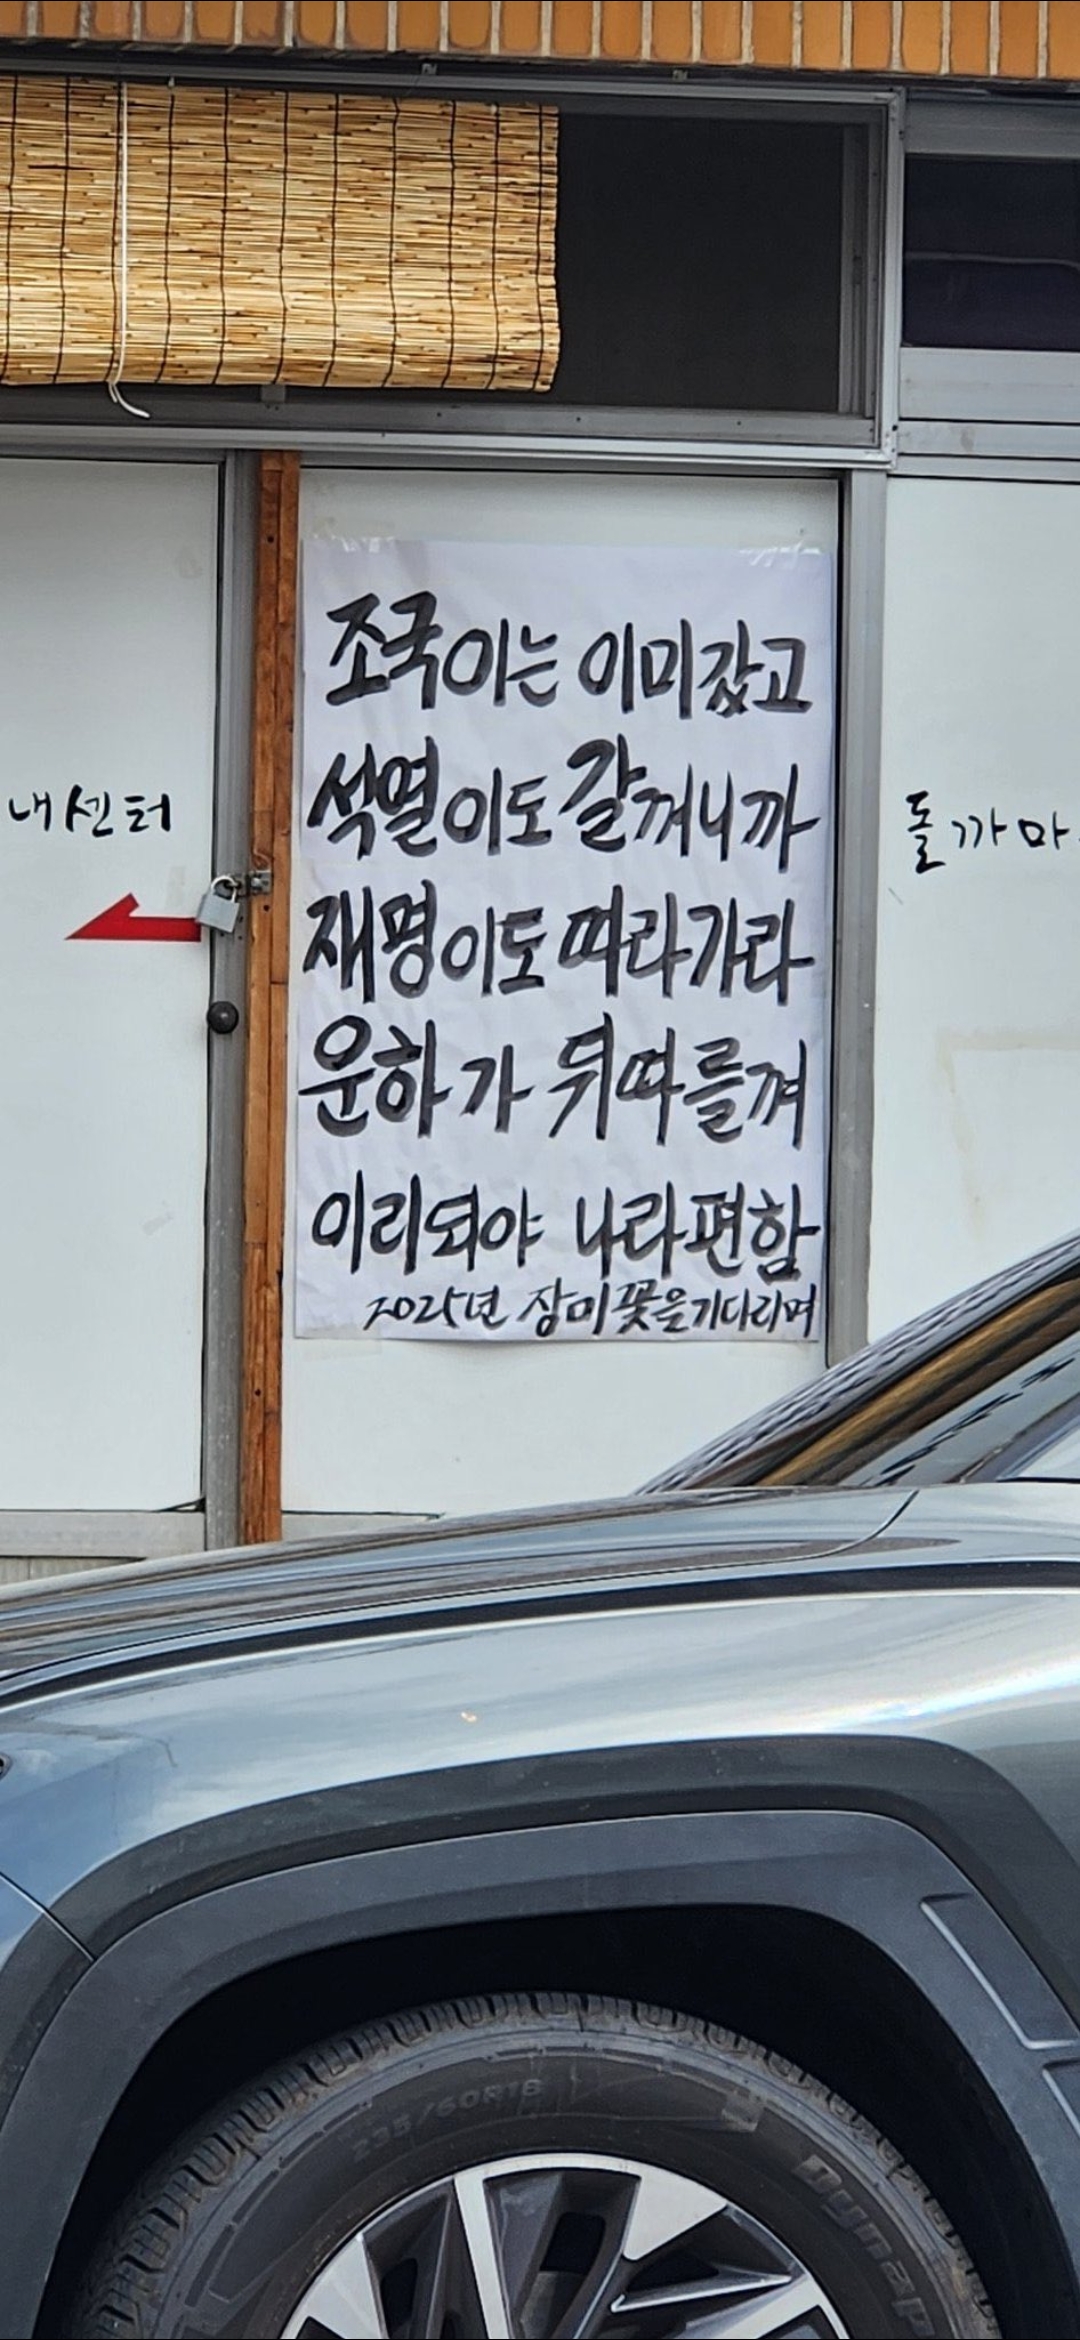 조국이는 이미갔고
석열이도 갈꺼니까
재명이도 따라가라
운하가 뒤따를껴
이리되야 나라편함
2025년 장미꽃을기다리며
내센터
돌까마
235/60R18
Dynap